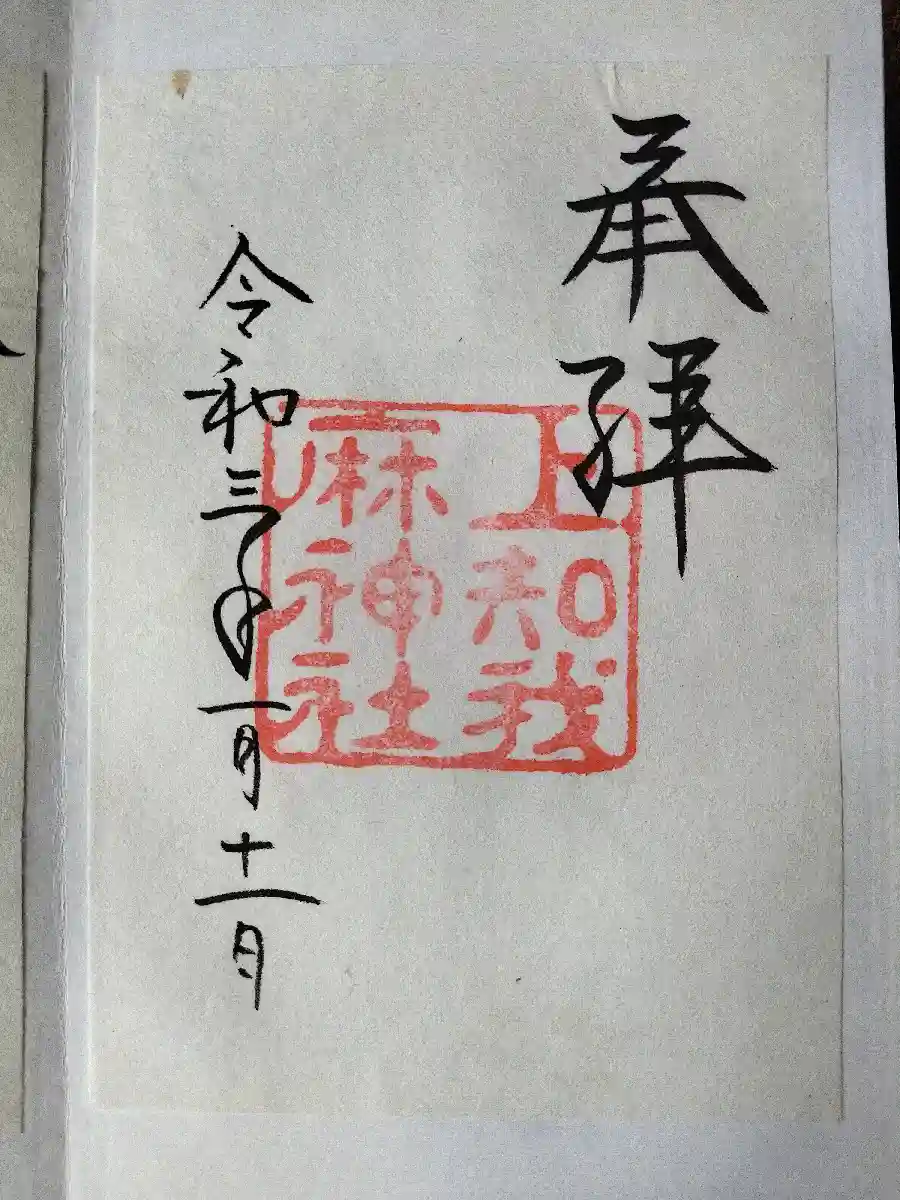 奉拝
上知我
麻神社
令和三年一月十一日